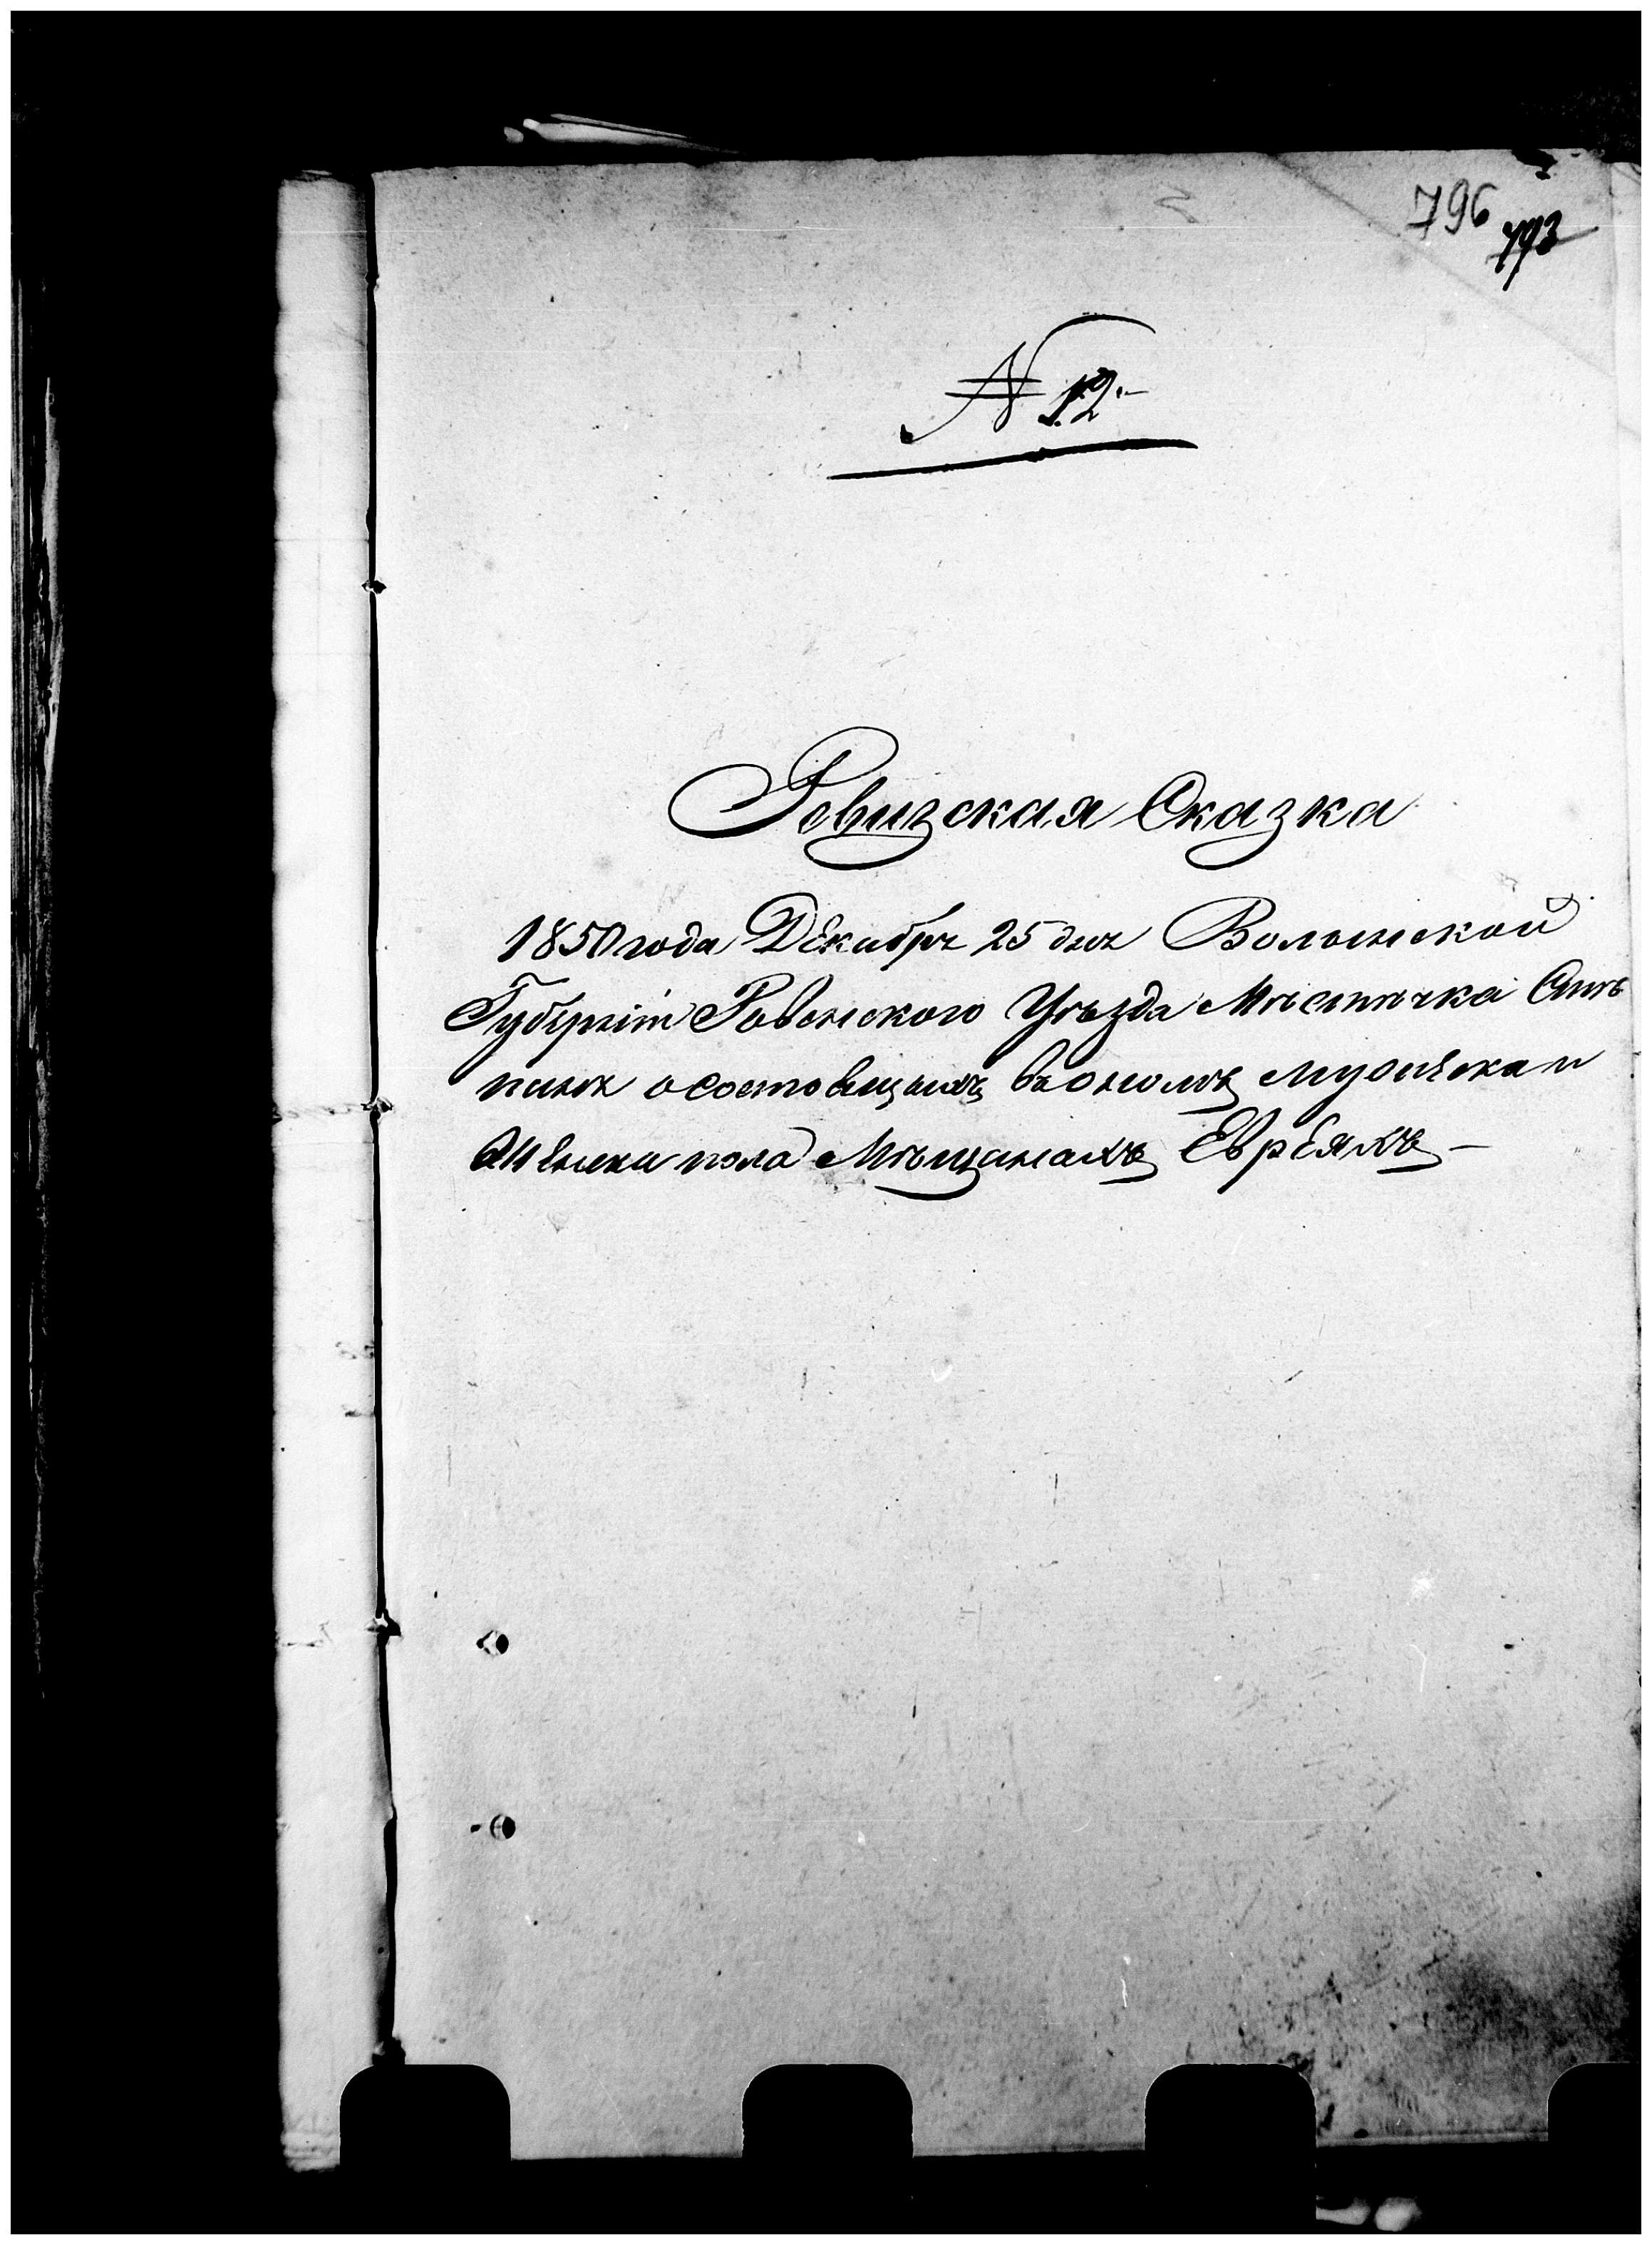 796
793
N 12.
Ревизская Сказка
1850 года Декабря 25 дня Волынской
Губерніи Ровенскаго Уѣзда Мѣстечка Сте
паня о состоящихъ въ ономъ мужеска и
Женска пола Мѣщанахъ Евреяхъ